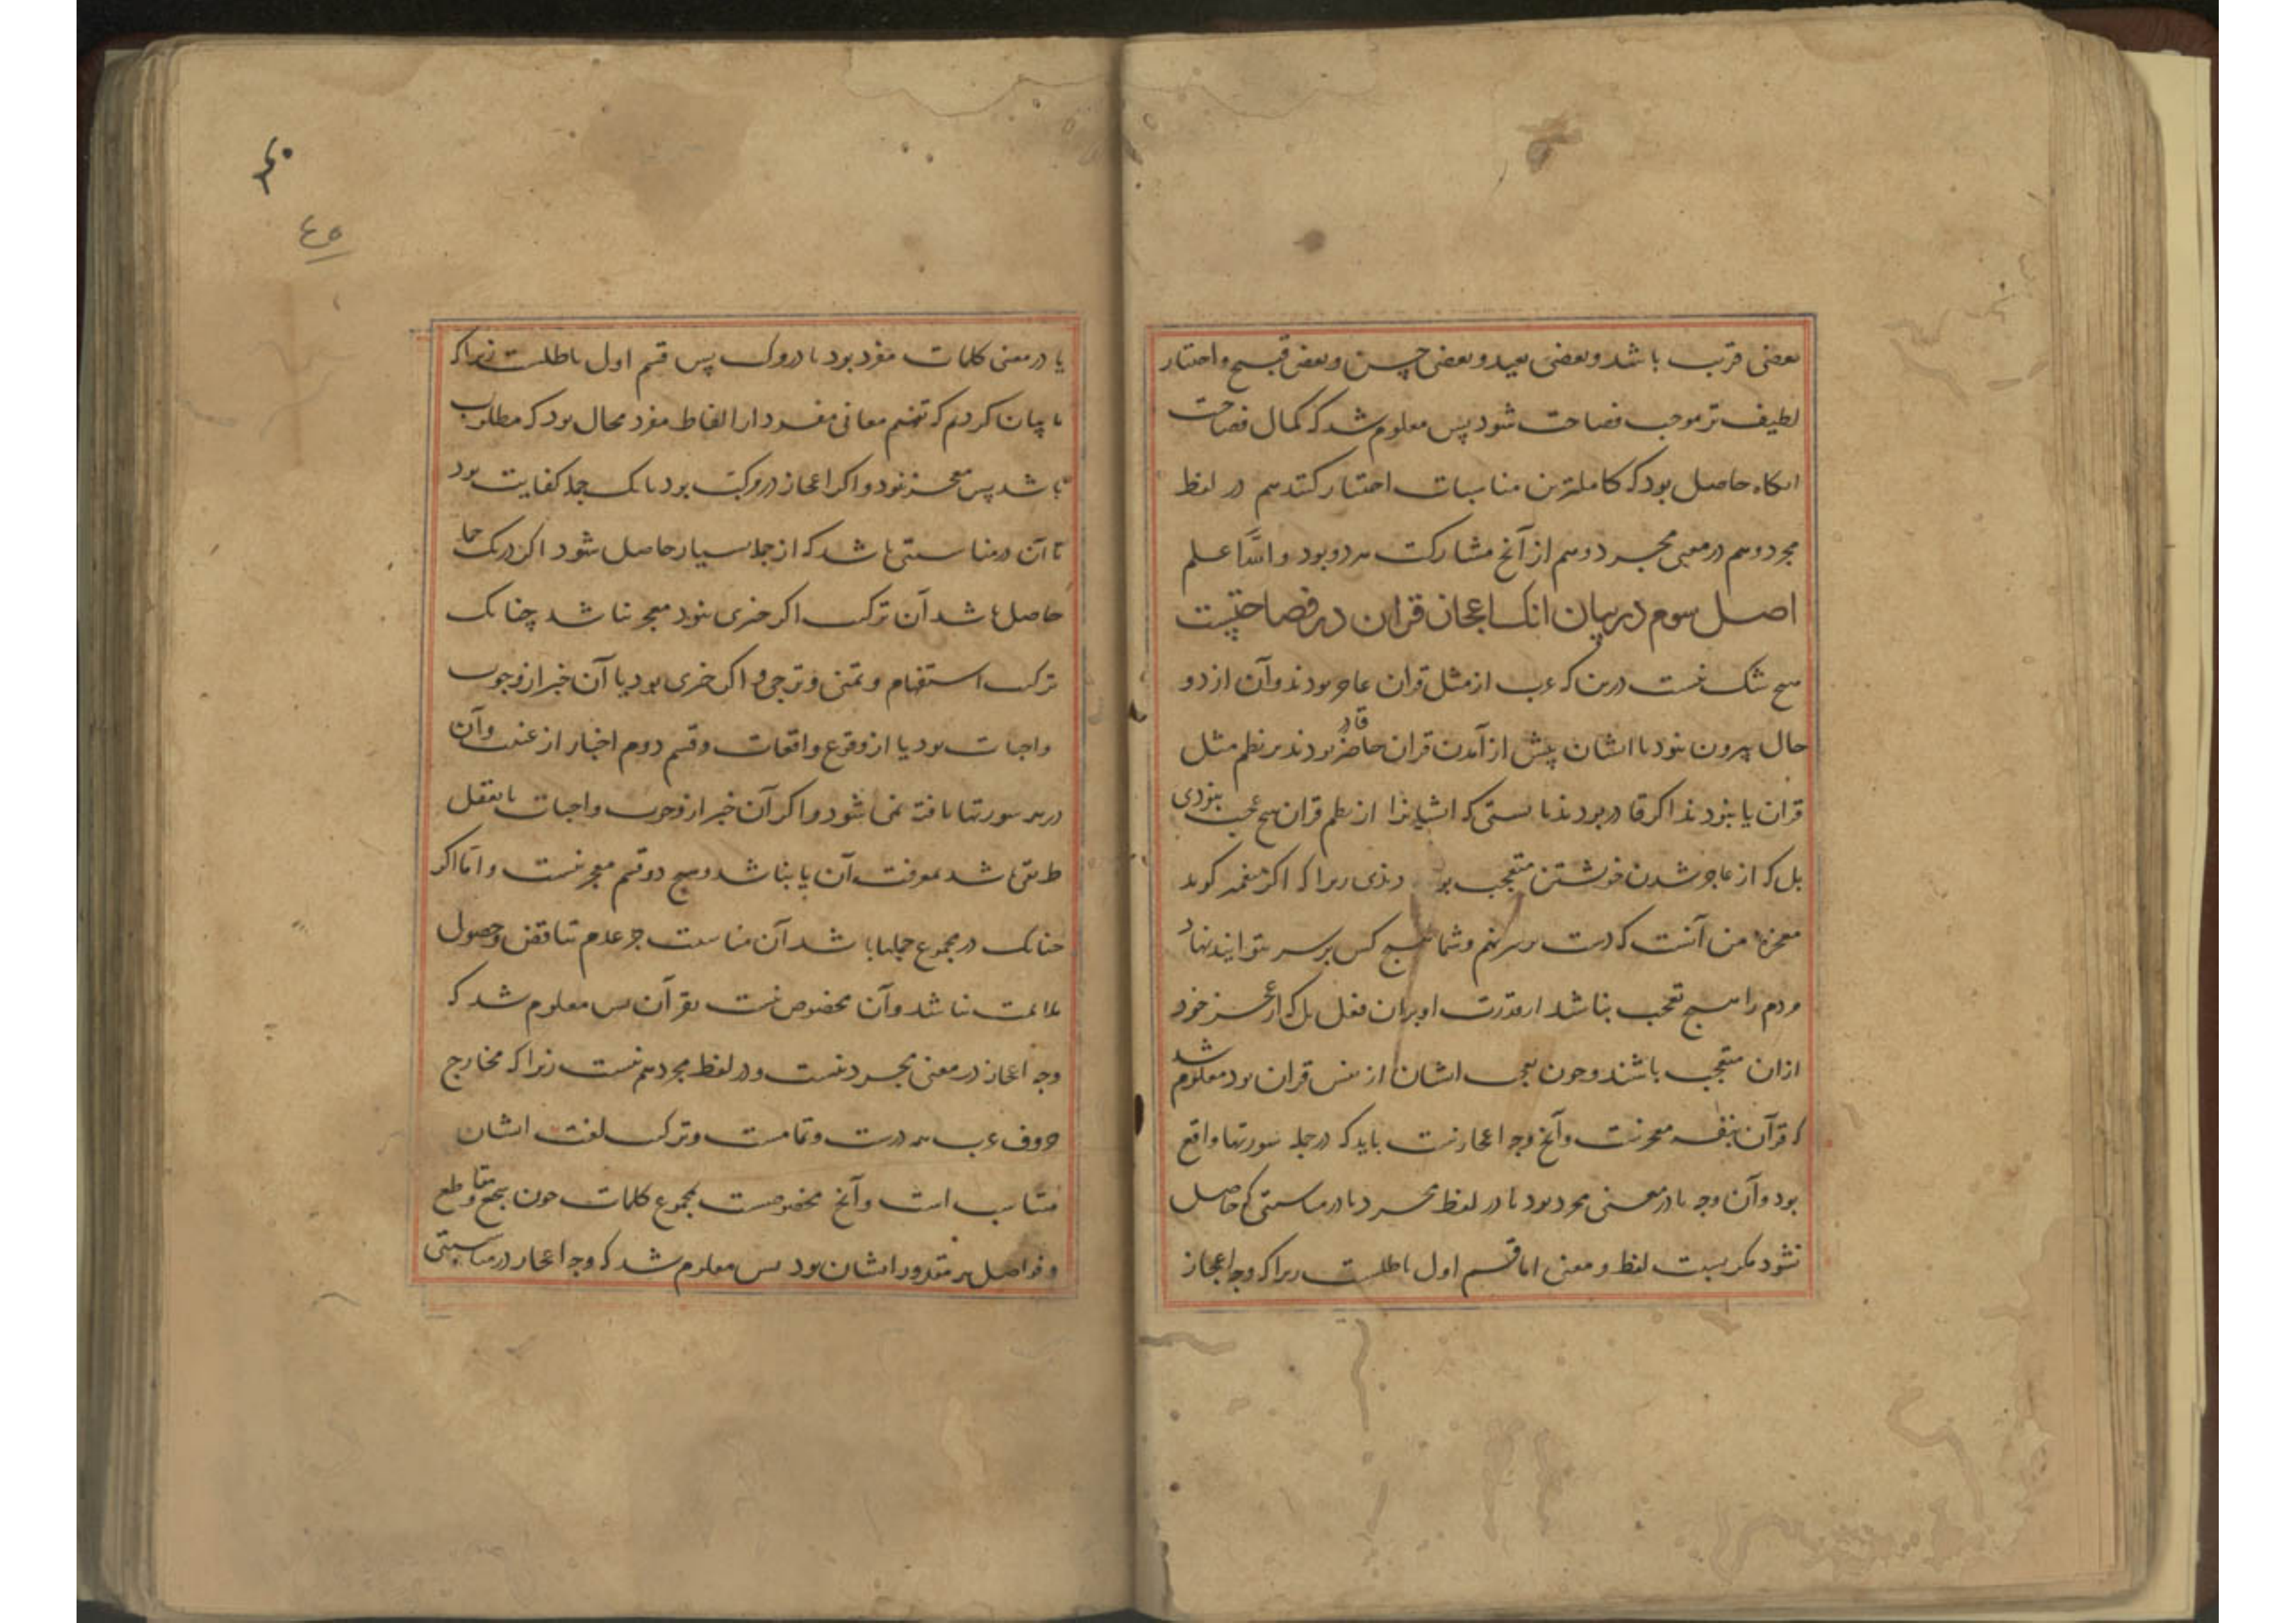 بعضی قریب باشد و بعضی بعید و بعضی حسن و بعضی قبیح و اختیار
لطیف تر موجب فصاحت شود پس معلوم شد که کمال فصاحت
انگاه حاصل بود که کاملترین مناسبات اختیار کنند هم در لفظ
مجرد و هم در معنی مجرد و هم از آنچ مشارکت هر دو بود والله اعلم
اصل سوم در بیان انک اعجاز قران در فصاحتست
هیچ شک نیست درین که عرب از مثل قران عاجز بودند و آن از دو
حال بیرون نبود یا ایشان پیش از آمدن قران قادر بودند بر نظم مثل
قران یا نبودند اگر قادر بودند بایستی که ایشانرا از نظم قران هیچ عجب نبودی
بل که از عاجز شدن خویشتن متعجب بودندی زیرا که اگر پیغمبر گوید
معجزه من آنست که دست بر سر نهم و شما هیچ کس بر سر نتوانید نهاد
مردم را هیچ تعجب نباشد از قدرت او بران فعل بل که از عجز خود
ازان متعجب باشند و چون تعجب ایشان از نفس قران بود معلوم شد
که قرآن بنفسه معجزست و آنچ وجه اعجازست باید که در جمله سورتها واقع
بود و آن وجه یا در معنی مجرد بود یا در لفظ مجرد یا در مناسبتی که حاصل
نشود مگر بسبب لفظ و معنی اما قسم اول باطلست زیرا که وجه اعجاز
٤٥
یا در معنی کلمات مفرد بود یا در مرکب پس قسم اول باطلست زیرا که
ما بیان کردیم که تفهیم معانی مفرد از الفاظ مفرد محال بود که مطلوب
باشد پس معجز نبود و اگر اعجاز در مرکب بود یا یک جمله کفایت بود
تا آن در مناسبتی باشد که از جمله بسیار حاصل شود اگر در یک جمله
حاصل باشد آن ترکیب اگر خبری نبود معجز نباشد چنانک
ترکیب استفهام و تمنی و ترجی و اگر خبری بود یا آن خبر از وجوب
واجبات بود یا از وقوع واقعات و قسم دوم اخبار از غیبت و آن
در هر سورتها یافته نمی شود و اگر آن خبر از وجوب واجبات یا بعقل
طریقی باشد بمعرفت آن یا نباشد و هیچ دو قسم معجز نیست و اما اگر
چنانک در مجموع جملها باشد آن مناسبت جز عدم تناقض و حصول
ملایمت نباشد و آن مخصوص نیست بقرآن پس معلوم شد که
وجه اعجاز در معنی مجرد نیست و در لفظ مجرد هم نیست زیرا که مخارج
حروف عرب همه درست و تمامست و ترکیب لغت ایشان
متناسب است و آنچ مخصوصست بمجموع کلمات چون سجع و مقاطع
و فواصل هم مقدور ایشان بود پس معلوم شد که وجه اعجاز در مناسبتی